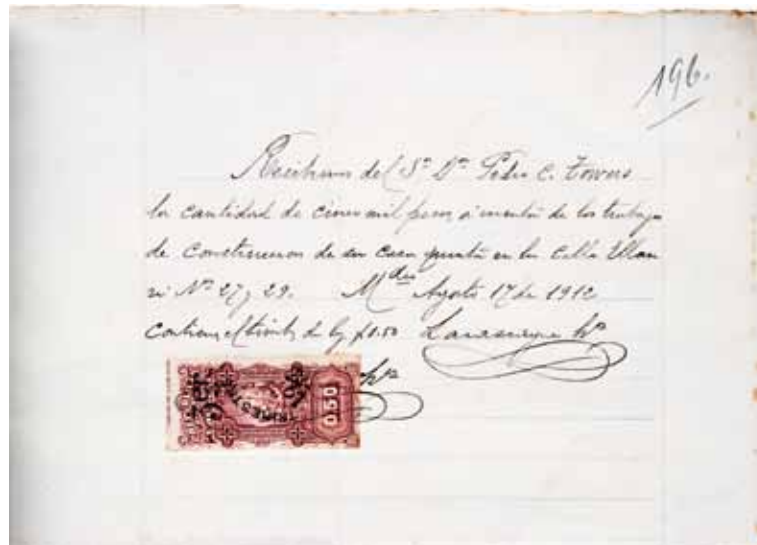 196.
Recibimos del Sr. Dn. Pedro C. Towers
la cantidad de cinco mil pesos, a cuenta de los trabajos
de construccion de su casa quinta en la calle Ellau
ri Nº 27 y 29. Mdeo Agosto 17 de 1912
Contiene el timbre de ley $0.50 hos
hos
0.50